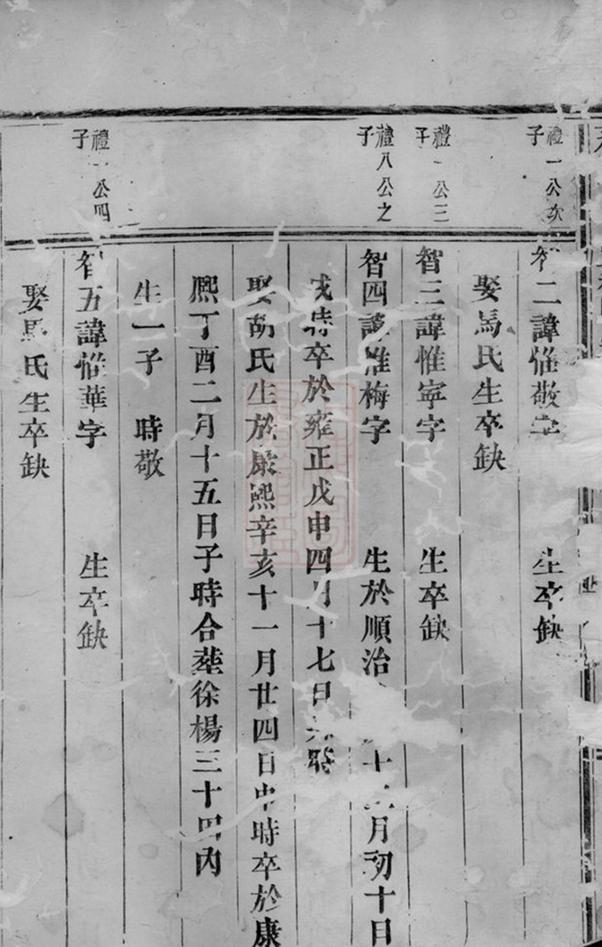 禮一公次子
智二諱惟敬字　生卒缺
娶馬氏生卒缺
禮一公三子
智三諱惟寧字　生卒缺
禮八公之子
智四諱惟梅字　生於順治　十　月初十日
戌時卒於雍正戊申四月十七日　時
娶胡氏生於康熙辛亥十一月廿四日申時卒於康
熙丁酉二月十五日子時合塟徐楊三十田內
生一子　時敬
禮一公四子
智五諱惟華字　生卒缺
娶馬氏生卒缺